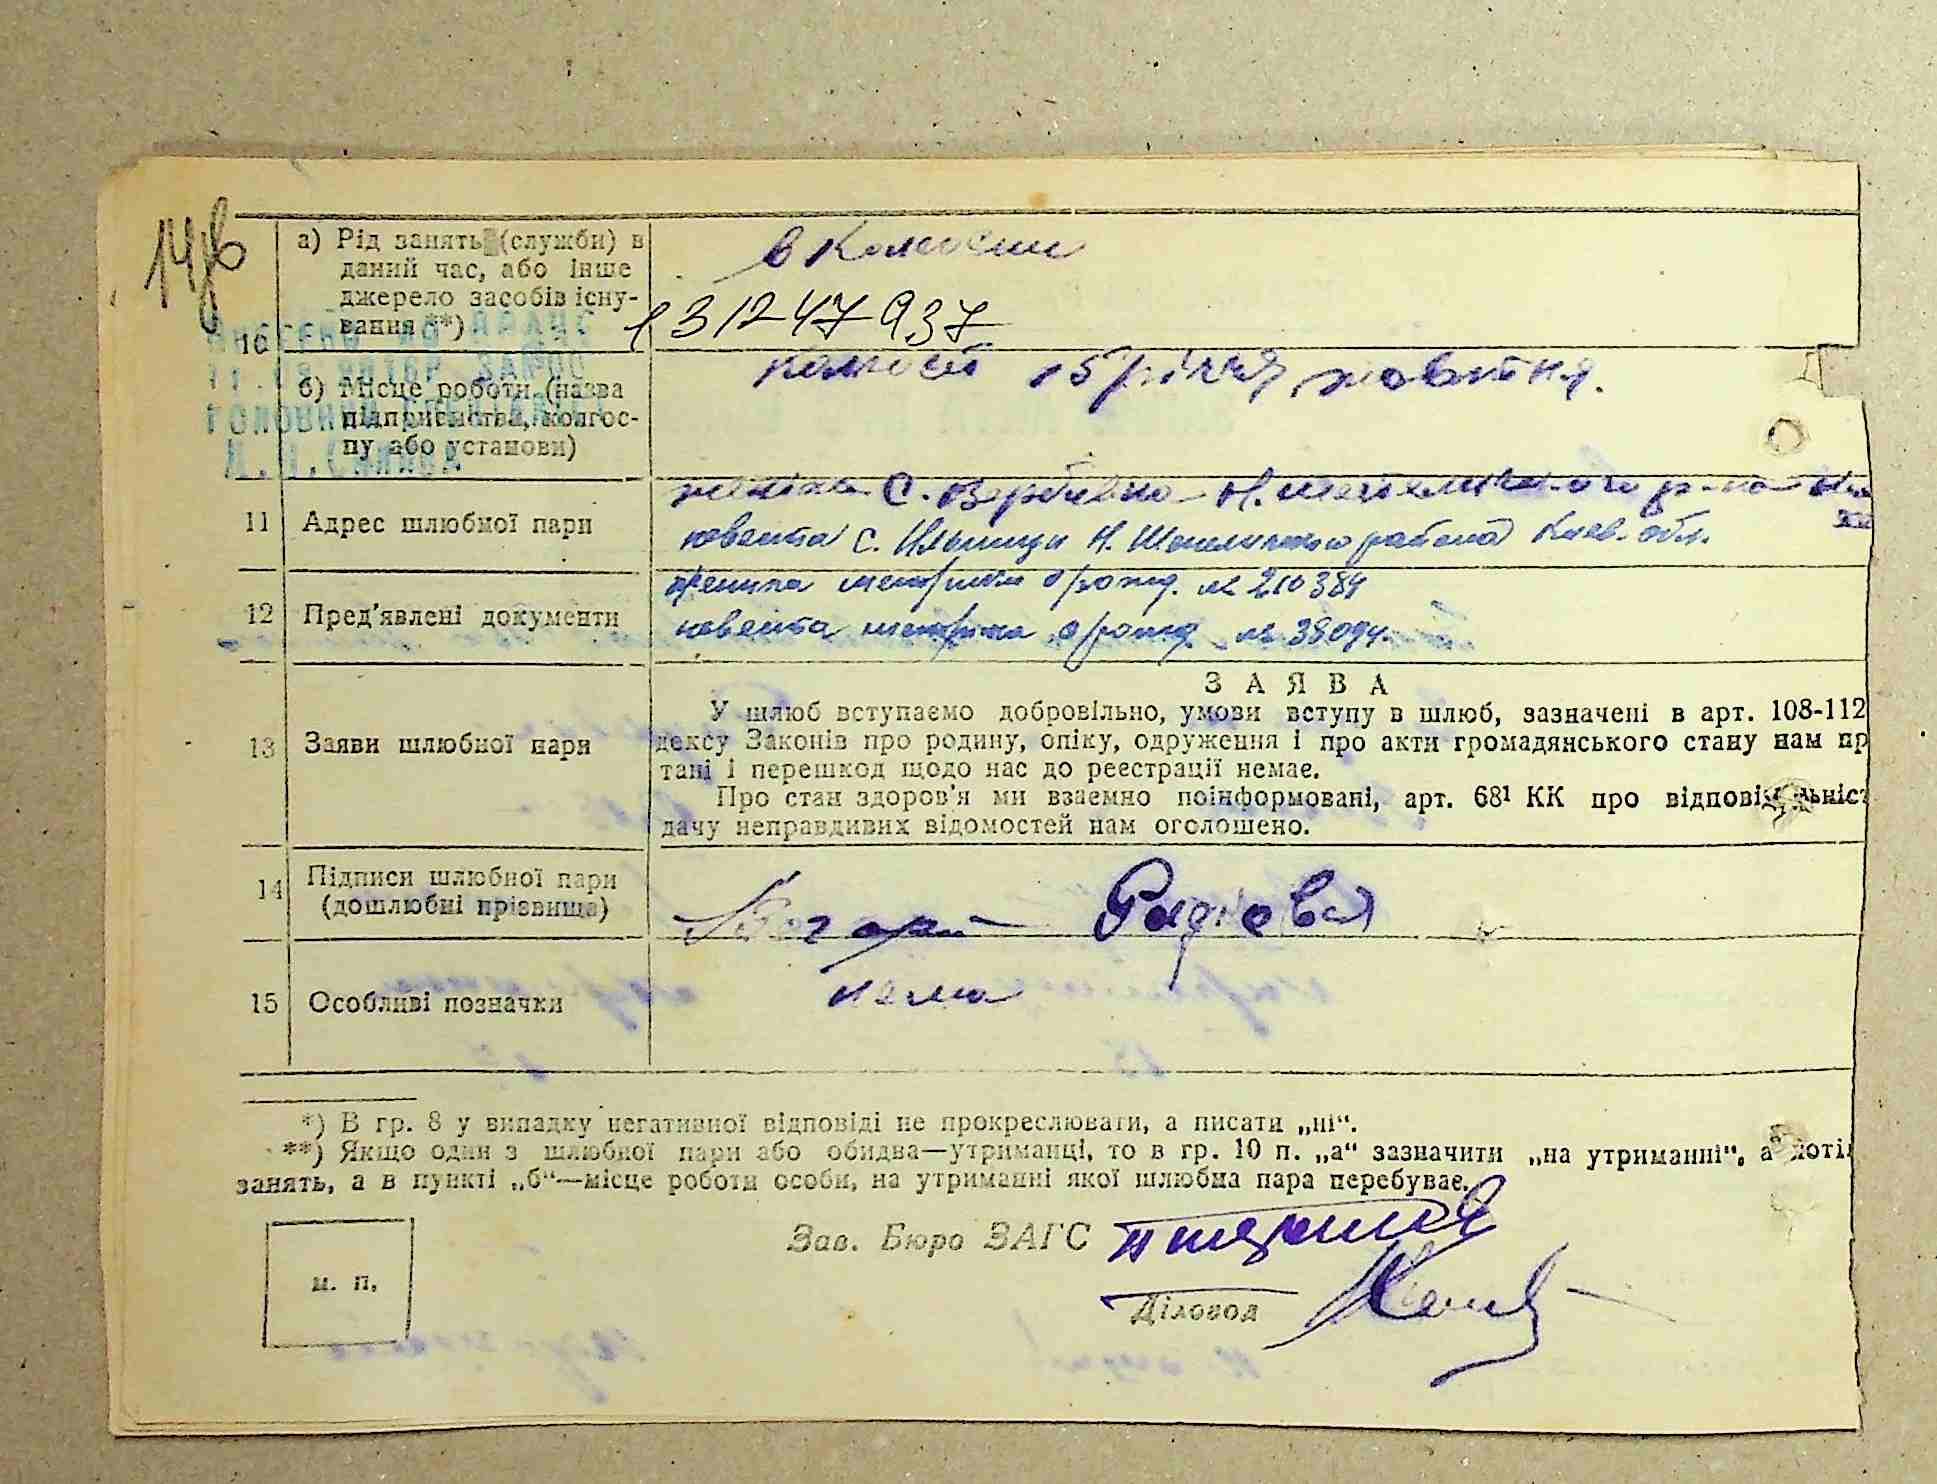 а) Рід занять (служби) в
даний час, або інше
джерело засобів існу-
вання **)
в колгоспи
131247937
10
б) Місце роботи (назва
підприємства, колгос-
пу або установи)
колгосп 15 річчя жовтня.
11 Адрес шлюбної пари
жениха С. Вербивка Н. Шепелицкого р-на
невеста с. Ильинци Н. Шепелицкого района Киев. обл.
12 Пред'явлені документи
жениха метрики о рожд. № 210384
невеста метрика о рожд. № 38094.
З А Я В А
13 Заяви шлюбної пари
У шлюб вступаємо добровільно, умови вступу в шлюб, зазначені в арт. 108-112
дексу Законів про родину, опіку, одруження і про акти громадянського стану нам пр
тані і перешкод щодо нас до реестрації немає.
Про стан здоров'я ми взаємно поінформовані, арт. 68¹ КК про відповідальніст
дачу неправдивих відомостей нам оголошено.
14 Підписи шлюбної пари
(дошлюбні прізвища)
15 Особливі позначки
нема
*) В гр. 8 у випадку негативної відповіді не прокреслювати, а писати „ні“.
**) Якщо один з шлюбної пари або обидва—утриманці, то в гр. 10 п. „а“ зазначити „на утриманні“, а
занять, а в пункті „б“—місце роботи особи, на утриманні якої шлюбна пара перебуває.
Зав. Бюро ЗАГС
м. п.
Діловод